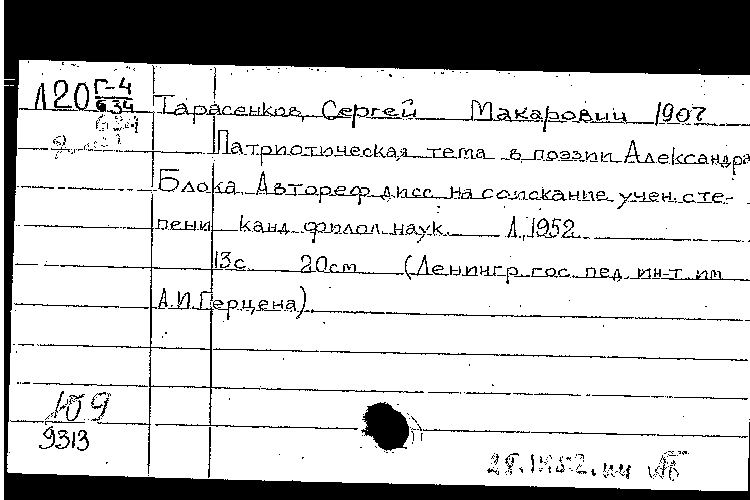 Л20 Г-4
634
Тарасенков, Сергей Макарович 1907
Патриотическая тема в поэзии Александра
Блока Автореф дисс на соискание учен. сте-
пени канд филол наук. Л, 1952
13с. 20см (Ленингр. гос. пед. ин-т им
А.И. Герцена).
Ю9
9313